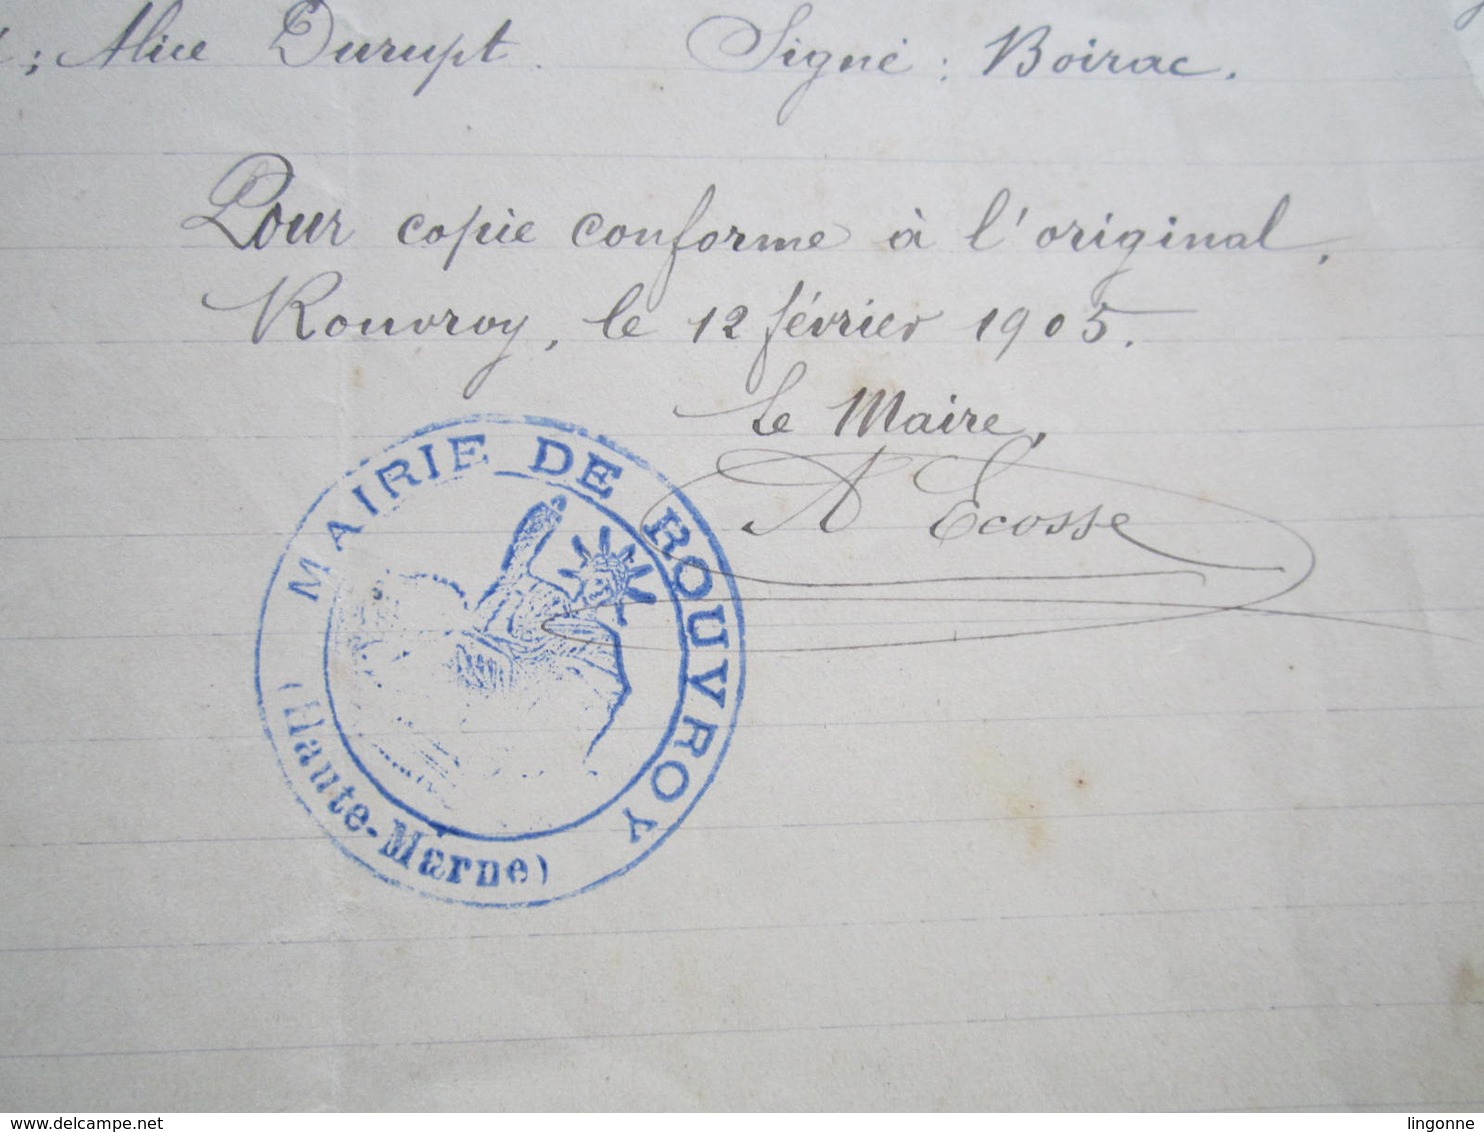 ; Alice Durupt. Signé : Boirac.
Pour copie conforme à l'original,
Rouvroy, le 12 février 1905.
Le Maire,
A Ecosse
MAIRIE DE ROUVROY
(Haute-Marne)
www.delcampe.net
lingonne